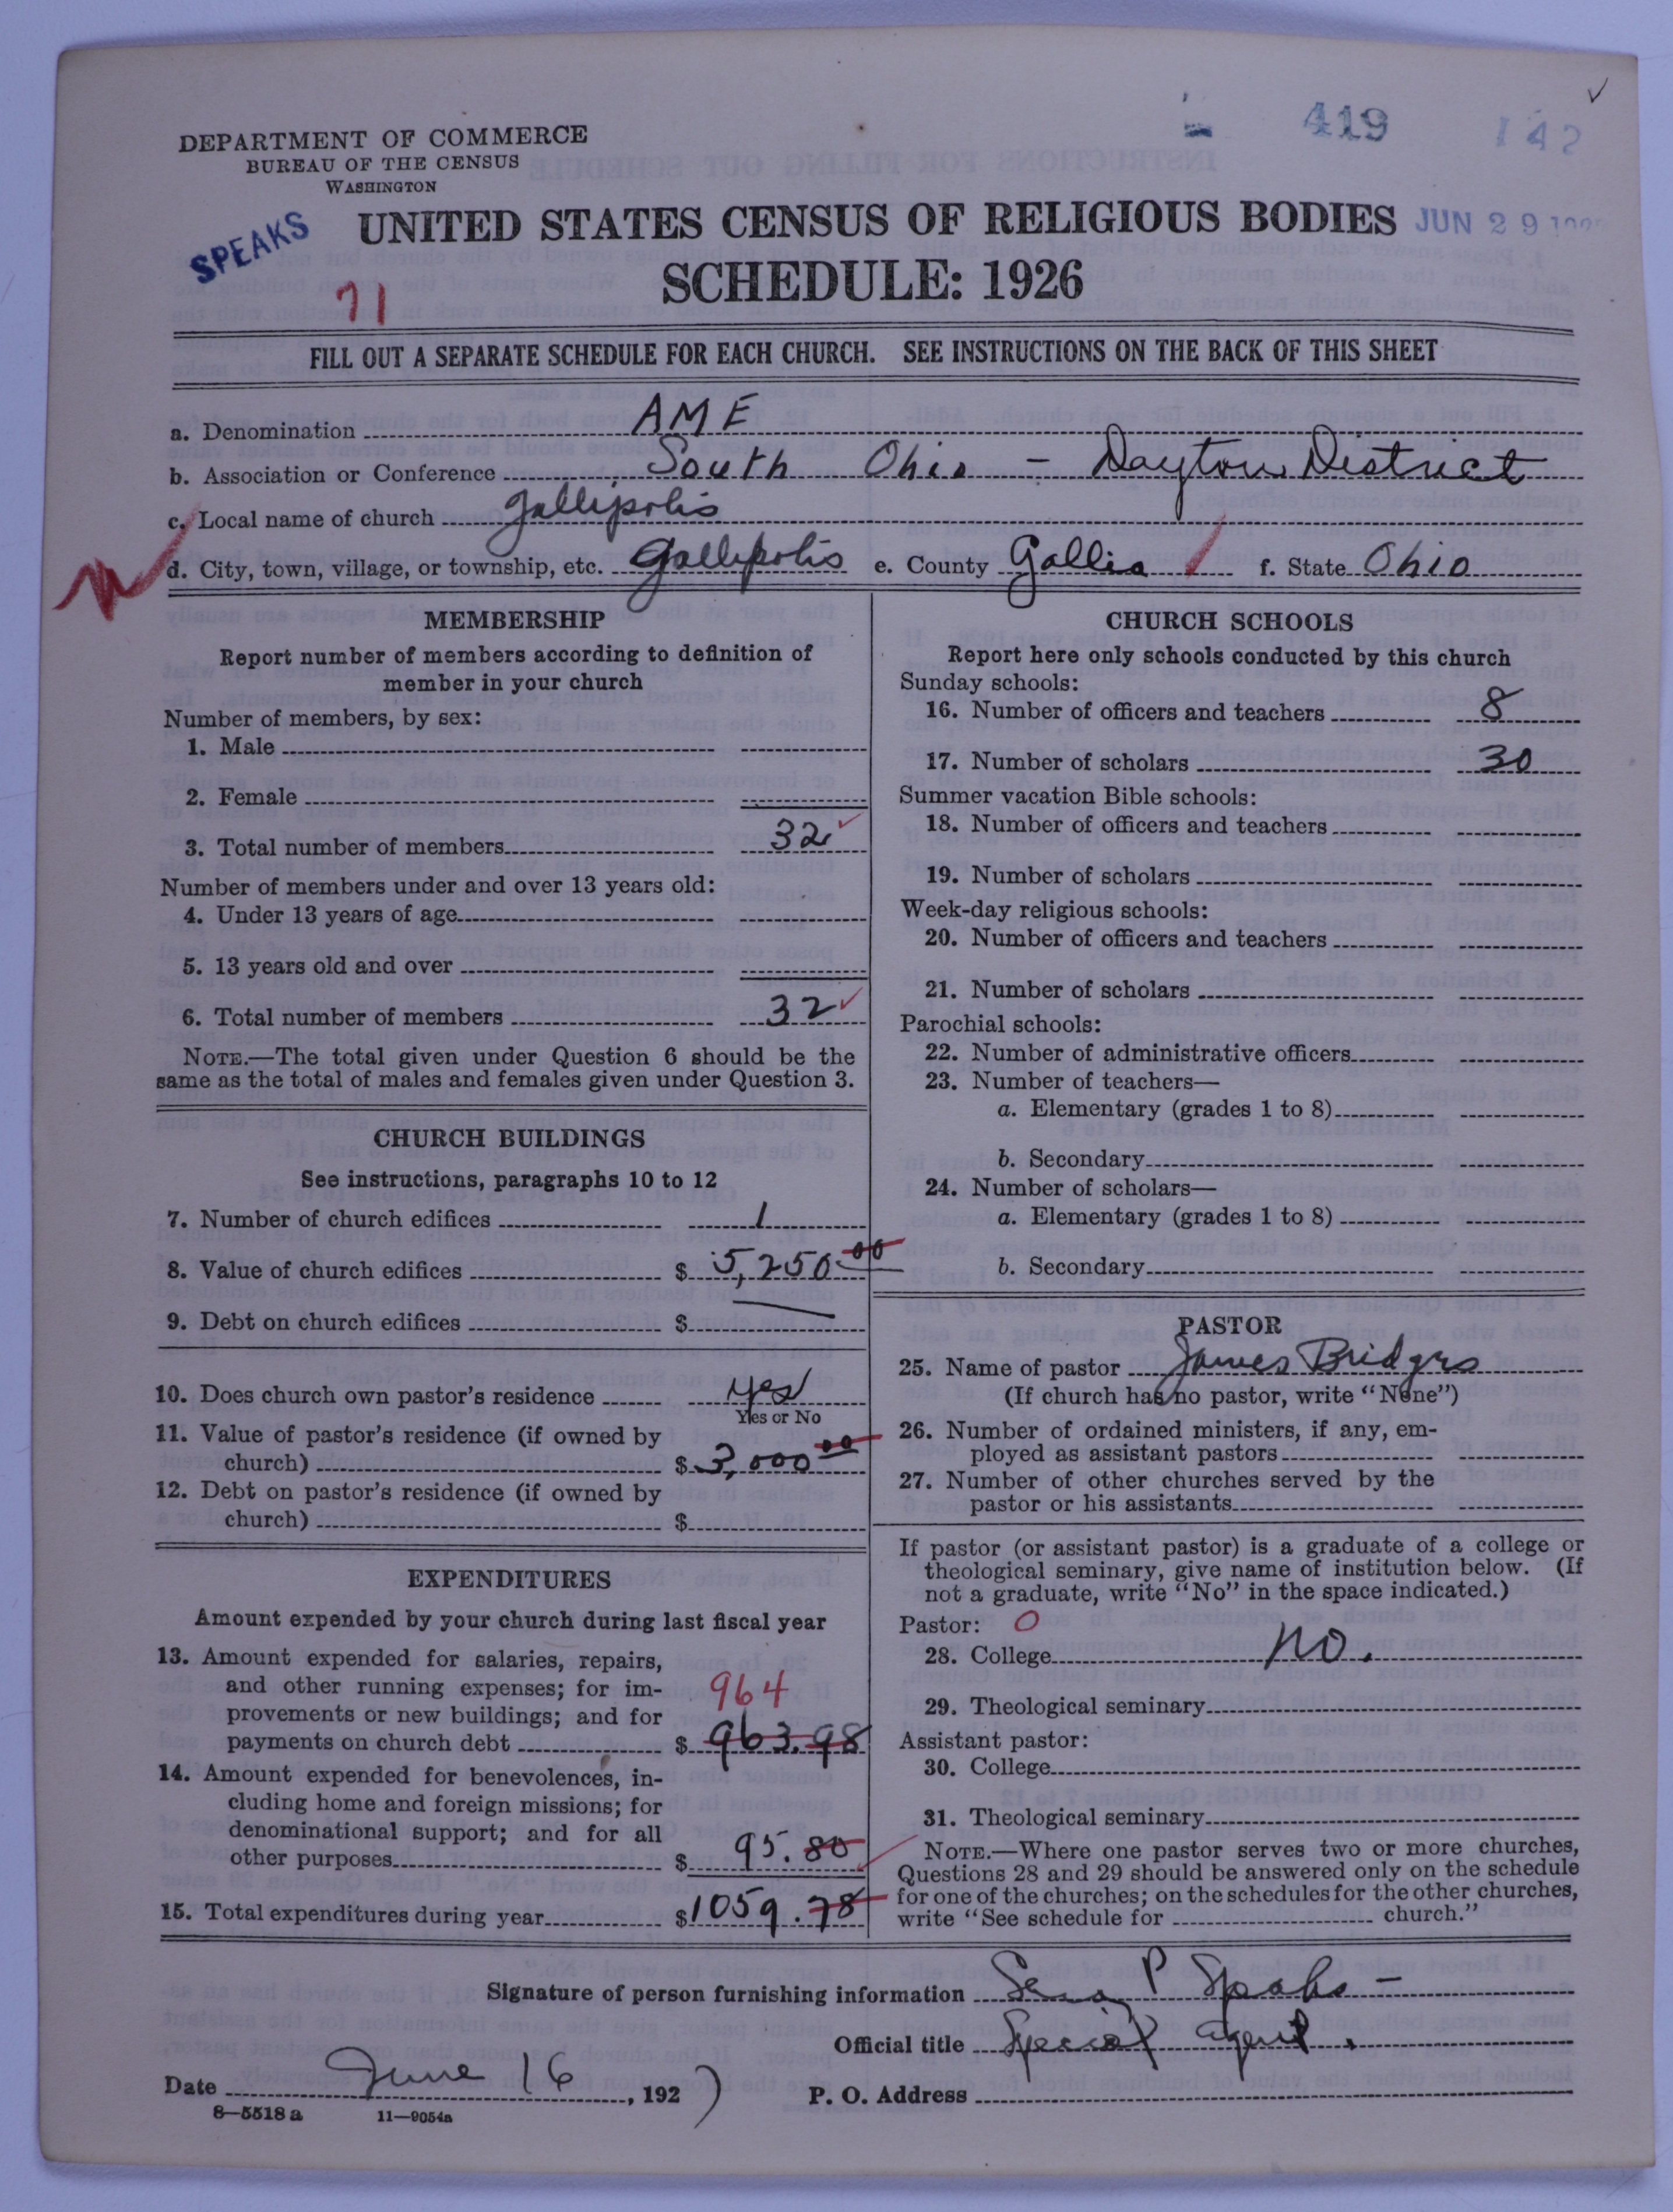 419
142
DEPARTMENT OF COMMERCE
BUREAU OF THE CENSUS
WASHINGTON
SPEAKS
UNITED STATES CENSUS OF RELIGIOUS BODIES
JUN 29
SCHEDULE: 1926
71
FILL OUT A SEPARATE SCHEDULE FOR EACH CHURCH. SEE INSTRUCTIONS ON THE BACK OF THIS SHEET
a. Denomination AME
b. Association or Conference South Ohio - Dayton District
c. Local name of church Gallipolis
d. City, town, village, or township, etc. Gallipolis e. County Gallia f. State Ohio
MEMBERSHIP
Report number of members according to definition of
member in your church
Number of members, by sex:
1. Male
2. Female
3. Total number of members 32
Number of members under and over 13 years old:
4. Under 13 years of age
5. 13 years old and over
6. Total number of members 32
NOTE.—The total given under Question 6 should be the
same as the total of males and females given under Question 3.
CHURCH BUILDINGS
See instructions, paragraphs 10 to 12
7. Number of church edifices 1
8. Value of church edifices $ 5,250.00
9. Debt on church edifices $
10. Does church own pastor's residence yes
Yes or No
11. Value of pastor's residence (if owned by
church) $ 3,000.00
12. Debt on pastor's residence (if owned by
church) $
EXPENDITURES
Amount expended by your church during last fiscal year
13. Amount expended for salaries, repairs,
and other running expenses; for im-
964
provements or new buildings; and for
payments on church debt $ 963.98
14. Amount expended for benevolences, in-
cluding home and foreign missions; for
denominational support; and for all
other purposes $ 95.80
15. Total expenditures during year $ 1059.78
CHURCH SCHOOLS
Report here only schools conducted by this church
Sunday schools:
16. Number of officers and teachers 8
17. Number of scholars 30
Summer vacation Bible schools:
18. Number of officers and teachers
19. Number of scholars
Week-day religious schools:
20. Number of officers and teachers
21. Number of scholars
Parochial schools:
22. Number of administrative officers
23. Number of teachers—
a. Elementary (grades 1 to 8)
b. Secondary
24. Number of scholars—
a. Elementary (grades 1 to 8)
b. Secondary
PASTOR
25. Name of pastor James Bridges
(If church has no pastor, write "None")
26. Number of ordained ministers, if any, em-
ployed as assistant pastors
27. Number of other churches served by the
pastor or his assistants
If pastor (or assistant pastor) is a graduate of a college or
theological seminary, give name of institution below. (If
not a graduate, write "No" in the space indicated.)
Pastor: 0
28. College no.
29. Theological seminary
Assistant pastor:
30. College
31. Theological seminary
NOTE.—Where one pastor serves two or more churches,
Questions 28 and 29 should be answered only on the schedule
for one of the churches; on the schedules for the other churches,
write "See schedule for church."
Signature of person furnishing information P Speaks -
Official title Special agent.
Date June 16, 1927 P. O. Address
8—5518 a 11—9054a